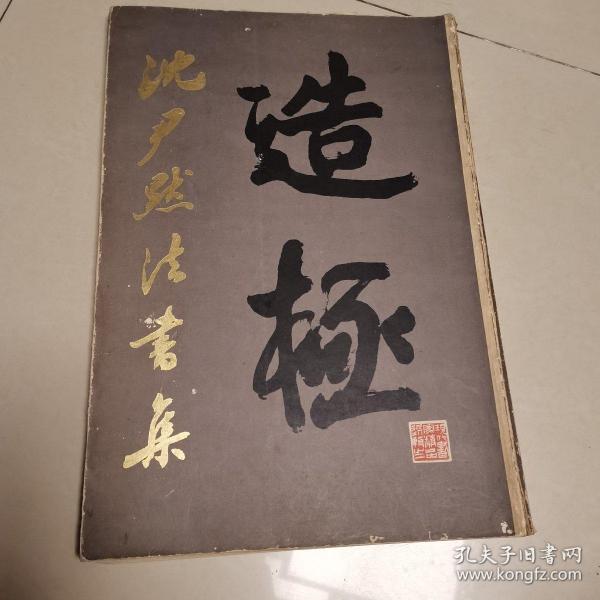 造極
沈尹默法书集
孔夫子旧书网
www.kongfz.com